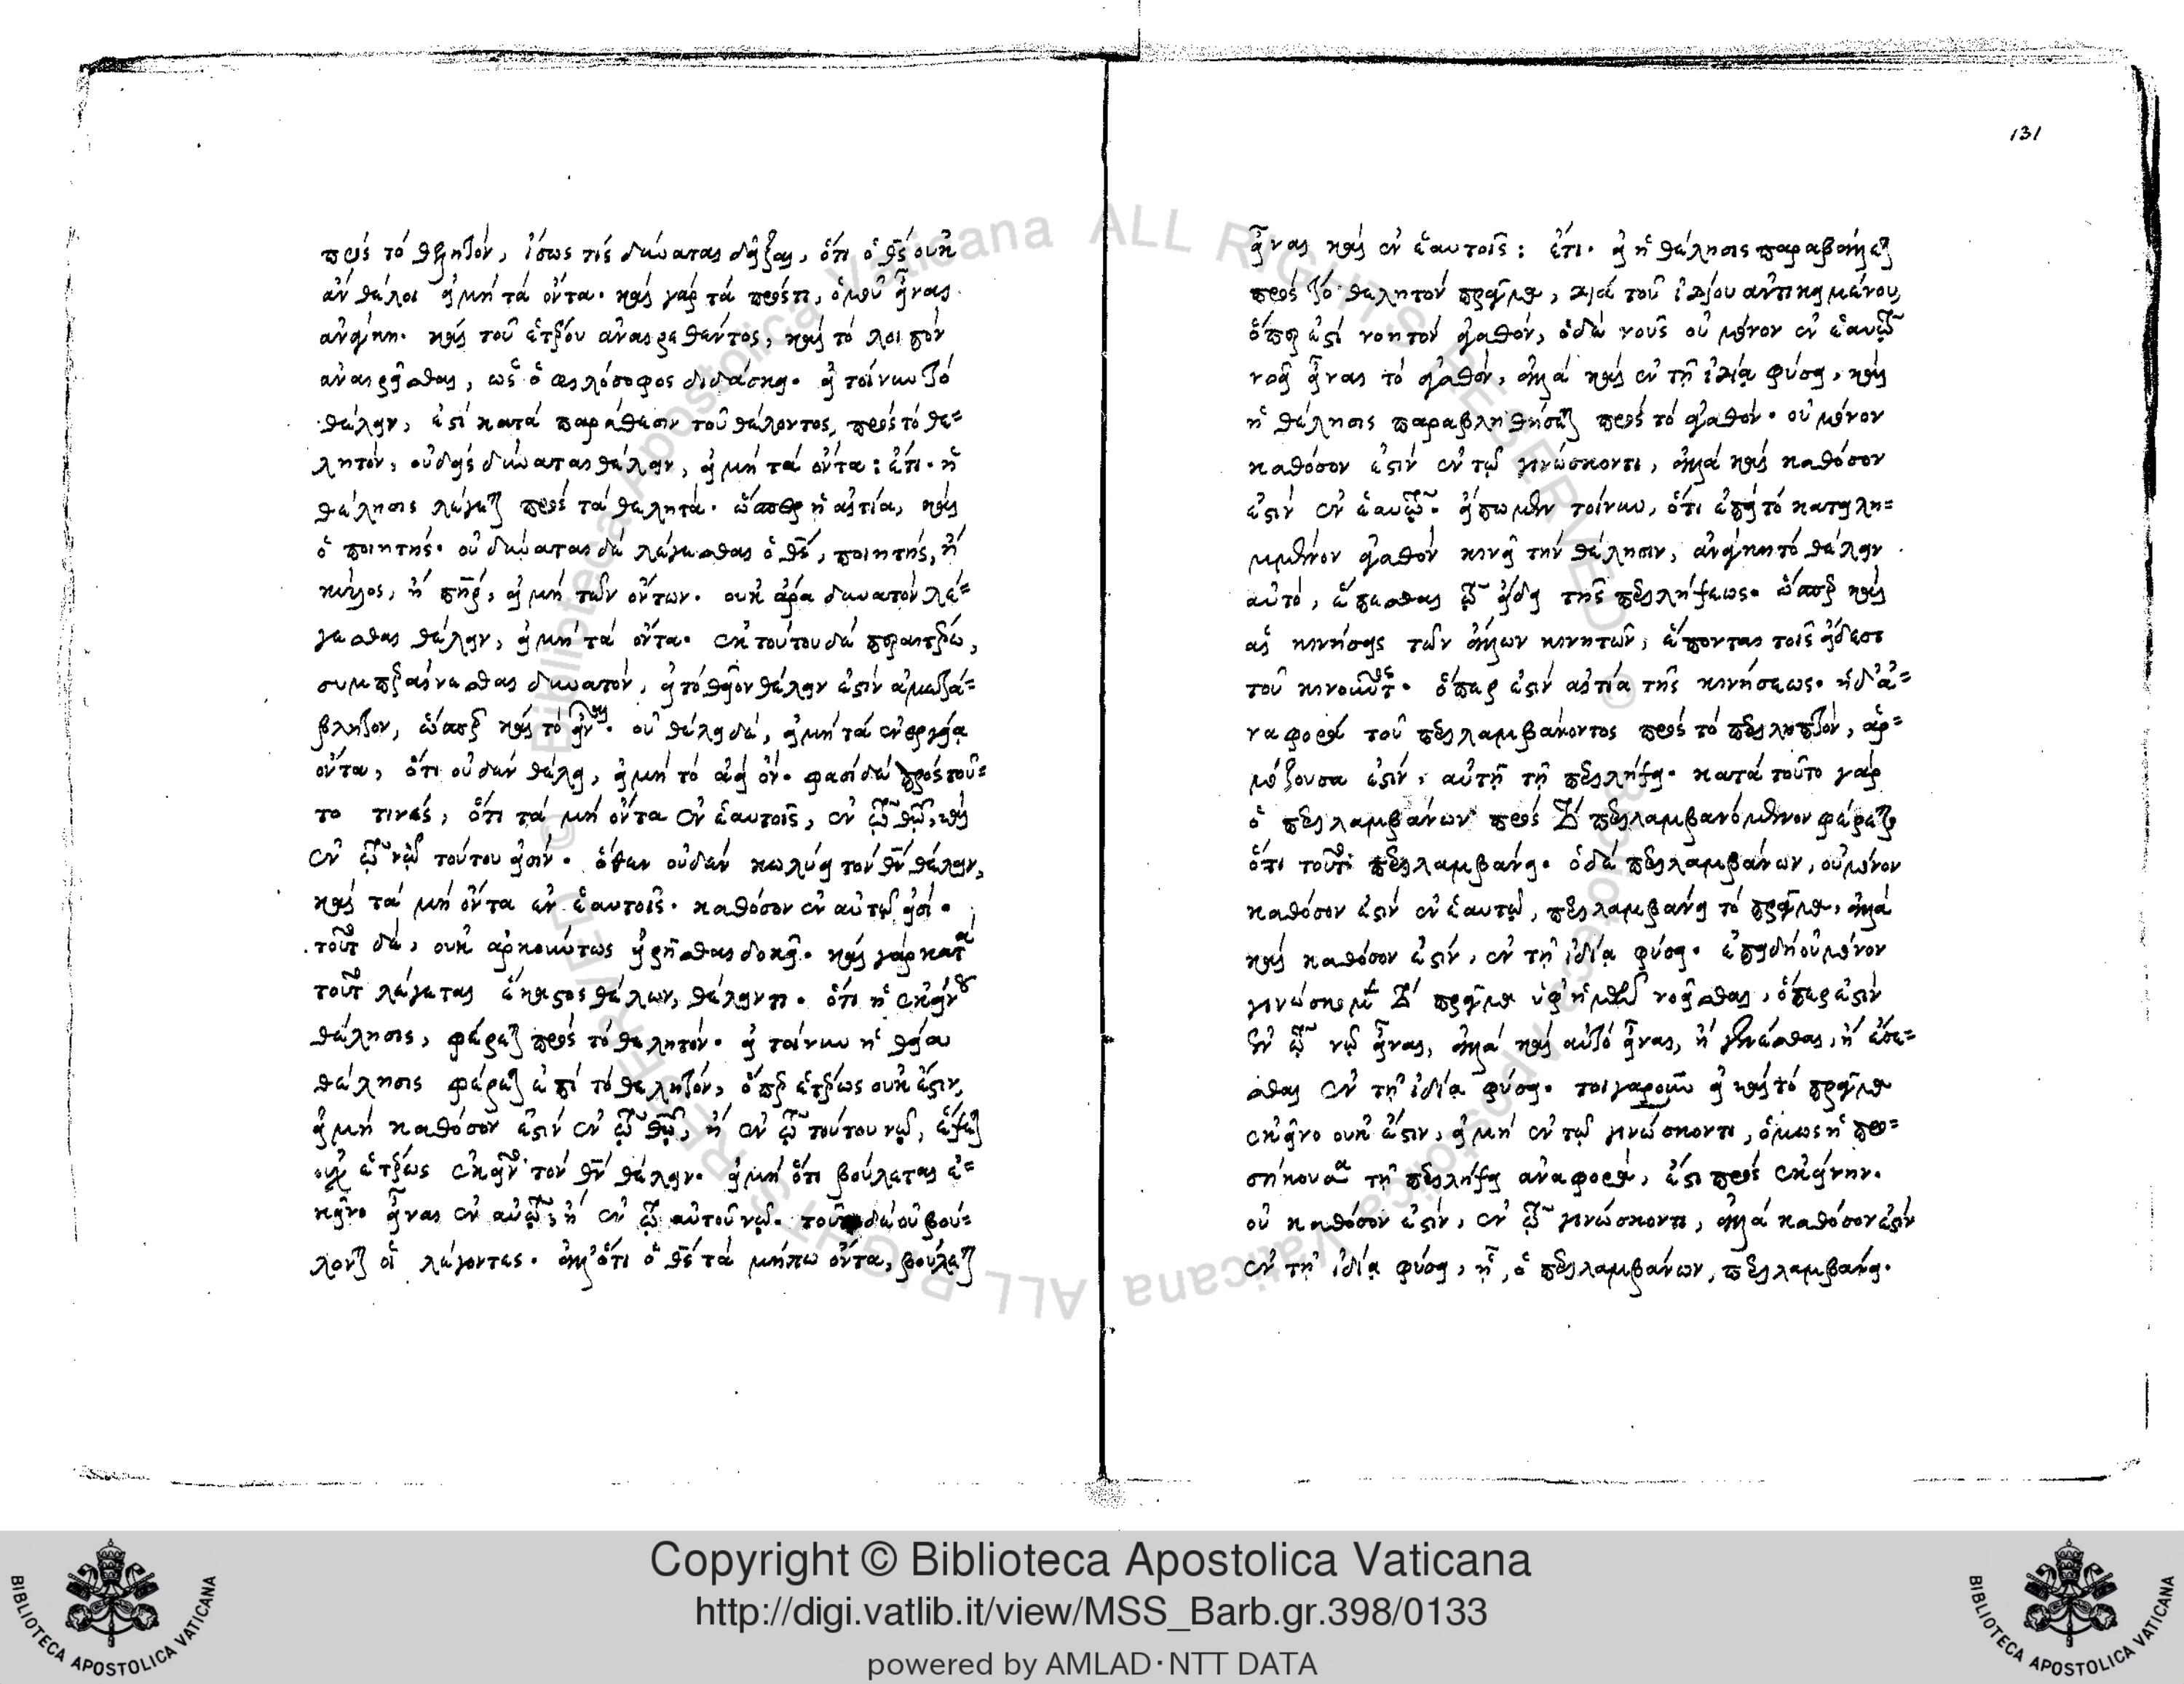 πρὸς τὸ θελητὸν, ἴσως τίς δύναται δεῖξαι, ὅτι ὁ θ̅ς̅ οὐκ
ἂν θέλοι εἰμὴ τὰ ὄντα. καὶ γὰρ τὰ πρόστι, ὁμοῦ εἶναι
ἀνάγκη. καὶ τοῦ ἑτέρου ἀναιρεθέντος, καὶ τὸ λοιπὸν
ἀναιρεῖσθαι, ὡς ὁ φιλόσοφος διδάσκει. εἰ τοίνυν τὸ
θέλειν, ἐστὶ κατὰ παράθεσιν τοῦ θέλοντος, πρὸς τὸ θε=
λητὸν, οὐδεὶς δύναται θέλειν, εἰμὴ τὰ ὄντα: ἔτι. ἡ
θέλησις λέγεται πρὸς τὰ θελητά. ὥσπερ ἡ αἰτία, καὶ
ὁ ποιητής. οὐ δύναται δὲ λέγεσθαι ὁ θ̅ς̅, ποιητής, ἢ
κύριος, ἢ π̅η̅ρ̅, εἰμὴ τῶν ὄντων. οὐκ ἄρα δυνατὸν λέ=
γεσθαι θέλειν, εἰμὴ τὰ ὄντα. ἐκ τούτου δὲ περαιτέρω,
συμπεραίνεσθαι δυνατόν, εἰ τὸ θεῖον θέλειν ἐστὶν ἀμετά=
βλητον, ὥσπερ καὶ τὸ εἶναι. οὐ θέλει δὲ, εἰμὴ τὰ ἐνεργείᾳ
ὄντα, ὅτι οὐδὲν θέλει, εἰμὴ τὸ ἀεὶ ὄν. φασὶ δὲ πρὸς τοῦ=
το τινές, ὅτι τὰ μὴ ὄντα ἐν ἑαυτοῖς, ἐν τῷ θ̅ῷ̅, καὶ
ἐν τῷ νῷ τούτου εἰσίν. ὅθεν οὐδὲν κωλύει τὸν θ̅ν̅ θέλειν,
καὶ τὰ μὴ ὄντα ἐν ἑαυτοῖς. καθόσον ἐν αὐτῷ εἰσί.
τοῦτο δὲ, οὐκ ἀρκούντως εἰρῆσθαι δοκεῖ. καὶ γὰρ κατὰ
τοῦτο λέγεται ἕκαστος θέλων, θέλειν τι. ὅτι ἡ ἐκείνου
θέλησις, φέρεται πρὸς τὸ θελητόν. εἰ τοίνυν ἡ θεία
θέλησις φέρεται ἐπὶ τὸ θελητὸν, ὅπερ ἑτέρως οὐκ ἔστιν,
εἰμὴ καθόσον ἐστὶν ἐν τῷ θ̅ῷ̅, ἢ ἐν τῷ τούτου νῷ, ἕψεται
οὐχ ἑτέρως ἐκεῖνο τὸν θ̅ν̅ θέλειν. εἰμὴ ὅτι βούλεται ἐ=
κεῖνο εἶναι ἐν αὐτῷ, ἢ ἐν τῷ αὐτοῦ νῷ. τοῦτο δὲ οὐ βού=
λονται οἱ λέγοντες. ἀλλ' ὅτι ὁ θ̅ς̅ τὰ μήπω ὄντα, βούλεται
131
εἶναι καὶ ἐν ἑαυτοῖς: ἔτι. εἰ ἡ θέλησις παραβάλλεται
πρὸς τὸ θελητὸν πρᾶγμα, διὰ τοῦ ἰδίου ἀντικειμένου,
ὅπερ ἐστὶ νοητὸν ἀγαθὸν, ὁ δὲ νοῦς οὐ μόνον ἐν ἑαυτῷ
νοεῖ εἶναι τὸ ἀγαθὸν, ἀλλὰ καὶ ἐν τῇ ἰδίᾳ φύσει, καὶ
ἡ θέλησις παραβληθήσεται πρὸς τὸ ἀγαθόν. οὐ μόνον
καθόσον ἐστὶν ἐν τῷ γινώσκοντι, ἀλλὰ καὶ καθόσον
ἐστὶν ἐν ἑαυτῷ. εἴπωμεν τοίνυν, ὅτι ἐπεὶ τὸ κατειλη=
μμένον ἀγαθὸν κινεῖ τὴν θέλησιν, ἀνάγκη τὸ θέλειν
αὐτὸ, ἕπεσθαι τῷ εἴδει τῆς περιλήψεως. ὥσπερ καὶ
αἱ κινήσεις τῶν ἄλλων κινητῶν, ἕπονται τοῖς εἴδεσι
τοῦ κινοῦντος. ὅπερ ἐστὶν αἰτία τῆς κινήσεως. ἡ δ' ἀ=
ναφορὰ τοῦ περιλαμβάνοντος πρὸς τὸ περιληπτὸν, ἁρ=
μόζουσα ἐστὶν, αὐτῇ τῇ περιλήψει. κατὰ τοῦτο γὰρ
ὁ περιλαμβάνων πρὸς τὸ περιλαμβανόμενον φέρεται
ὅτι τοῦτο περιλαμβάνει. ὁ δὲ περιλαμβάνων, οὐ μόνον
καθόσον ἐστὶν ἐν ἑαυτῷ, περιλαμβάνει τὸ πρᾶγμα, ἀλλὰ
καὶ καθόσον ἐστὶν, ἐν τῇ ἰδίᾳ φύσει. ἐπειδὴ οὐ μόνον
γινώσκομεν τὸ πρᾶγμα ὑφ' ἡμῶν νοεῖσθαι, ὅπερ ἐστὶν
ἐν τῷ νῷ εἶναι, ἀλλὰ καὶ αὐτὸ εἶναι, ἢ γενέσθαι, ἢ ἔσε=
σθαι ἐν τῇ ἰδίᾳ φύσει. τοιγαροῦν εἰ καὶ τὸ πρᾶγμα
ἐκεῖνο οὐκ ἔστιν, εἰμὴ ἐν τῷ γινώσκοντι, ὅμως ἡ προ=
σήκουσα τῇ περιλήψει ἀναφορὰ, ἐστὶ πρὸς ἐκείνην.
οὐ καθόσον ἐστὶν, ἐν τῷ γινώσκοντι, ἀλλὰ καθόσον ἐστὶν
ἐν τῇ ἰδίᾳ φύσει, ᾗ, ὁ περιλαμβάνων, περιλαμβάνει.
Copyright © Biblioteca Apostolica Vaticana
http://digi.vatlib.it/view/MSS_Barb.gr.398/0133
powered by AMLAD·NTT DATA
BIBLIOTECA APOSTOLICA VATICANA
BIBLIOTECA APOSTOLICA VATICANA
© Biblioteca Apostolica Vaticana ALL RIGHTS RESERVED
© Biblioteca Apostolica Vaticana ALL RIGHTS RESERVED